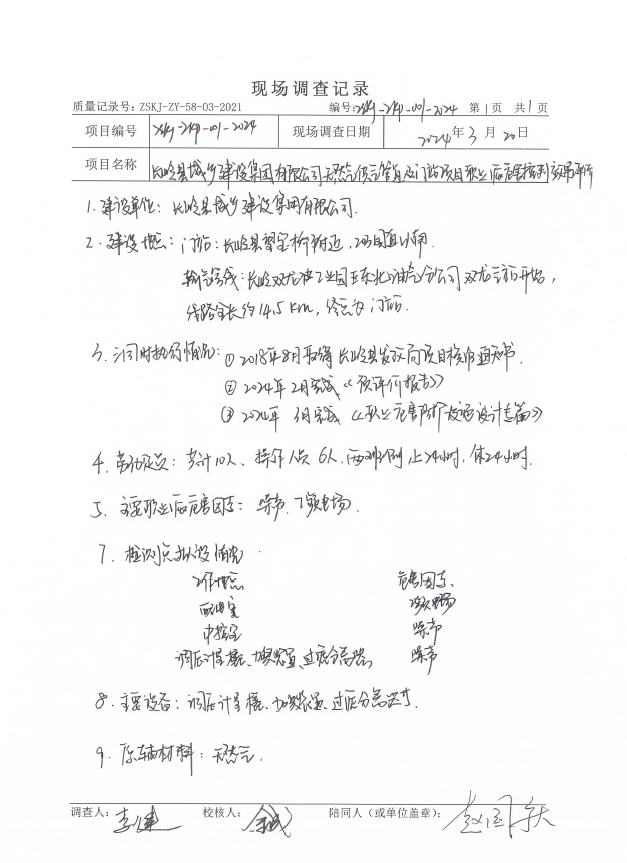 现场调查记录
质量记录号：ZSKJ-ZY-58-03-2021 编号： -001-2024 第1页 共1页
项目编号 -001-2024 现场调查日期 2024年3月20日
项目名称 长岭县城乡建设集团有限公司天然气供气管道及门站项目职业病危害控制效果评价
1.建设单位：长岭县城乡建设集团有限公司.
2.建设地点：门站：长岭县 附近,203国道以南
输气管线：长岭双龙 工业园 东北油气分公司双龙 开始，
线路全长约14.5km，终点为门站.
3.三同时执行情况：①2018年8月取得长岭县发改局项目核准通知书.
②2024年2月完成《预评价报告》
③2024年 月完成《职业病危害防护设施设计专篇》
4.劳动定员：共计10人、操作人员6人、两班制上24小时，休24小时.
5.主要职业病危害因素：噪声、工频电场.
7.检测点拟设情况
工作地点 危害因素
配电室 工频电场
中控室 噪声
调压计量橇、加臭装置、过滤分离器 噪声
8.主要设备：调压计量橇、加臭装置、过滤分离器等.
9.原辅材料：天然气.
调查人： 校核人： 陪同人（或单位盖章）：